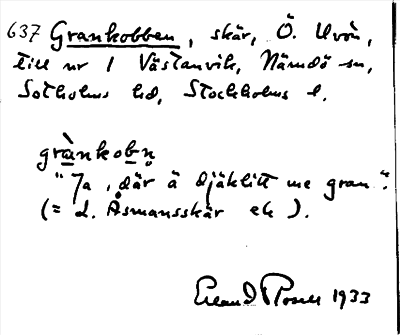 637 Grankobben, skär, Ö. Uvön,
till nr 1 Västanvik, Nämdö sn,
Sotholms hd, Stockholms l.
grànkobn̥
"Ja, där ä djäklitt me gran".
(= d. Åsmansskär ek).
Erland Rosell 1933